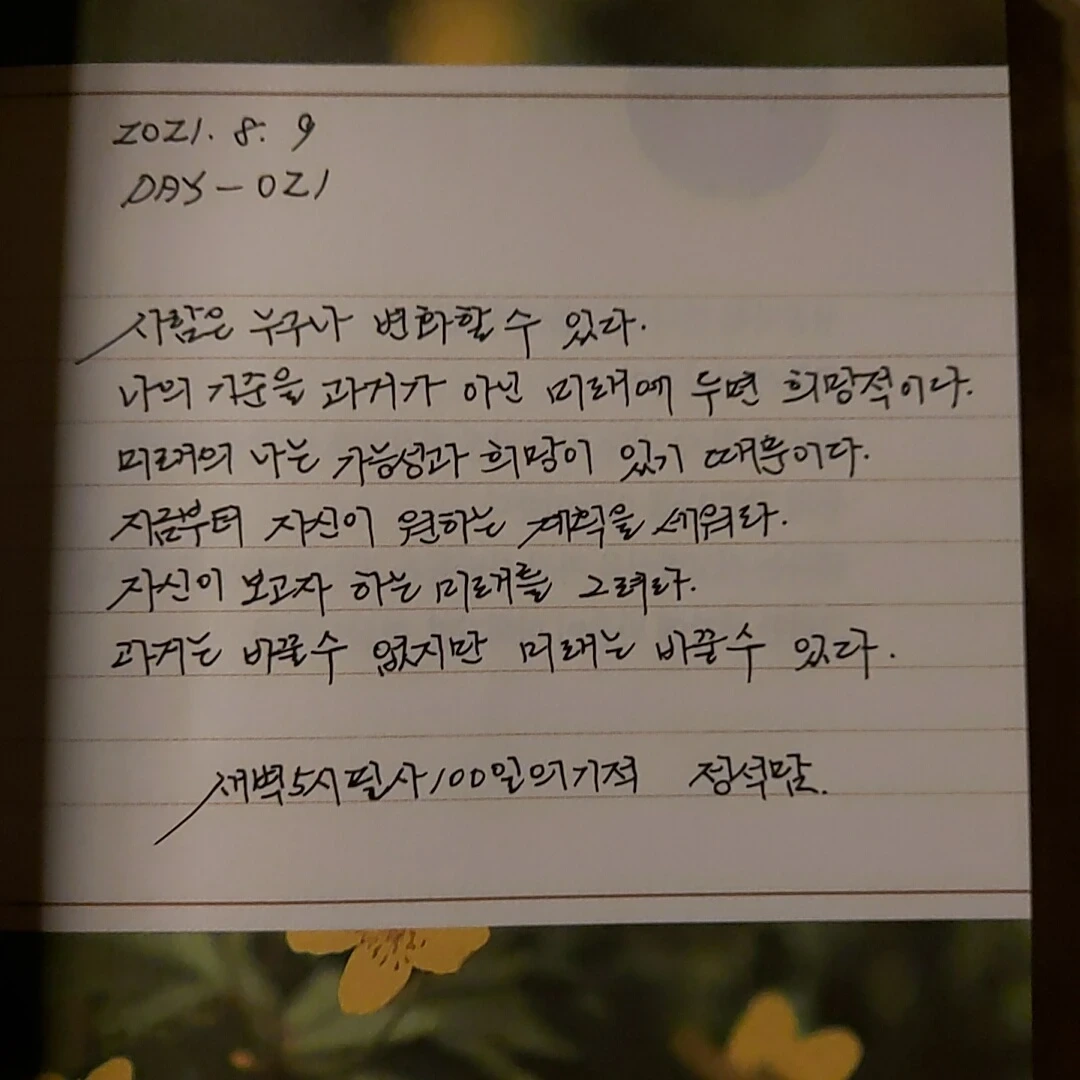 2021. 8. 9
DAY-021
사람은 누구나 변화할 수 있다.
나의 기준을 과거가 아닌 미래에 두면 희망적이다.
미래의 나는 가능성과 희망이 있기 때문이다.
지금부터 자신이 원하는 계획을 세워라.
자신이 보고자 하는 미래를 그려라.
과거는 바꿀수 없지만 미래는 바꿀수 있다.
새벽5시필사100일의기적 정석맘.